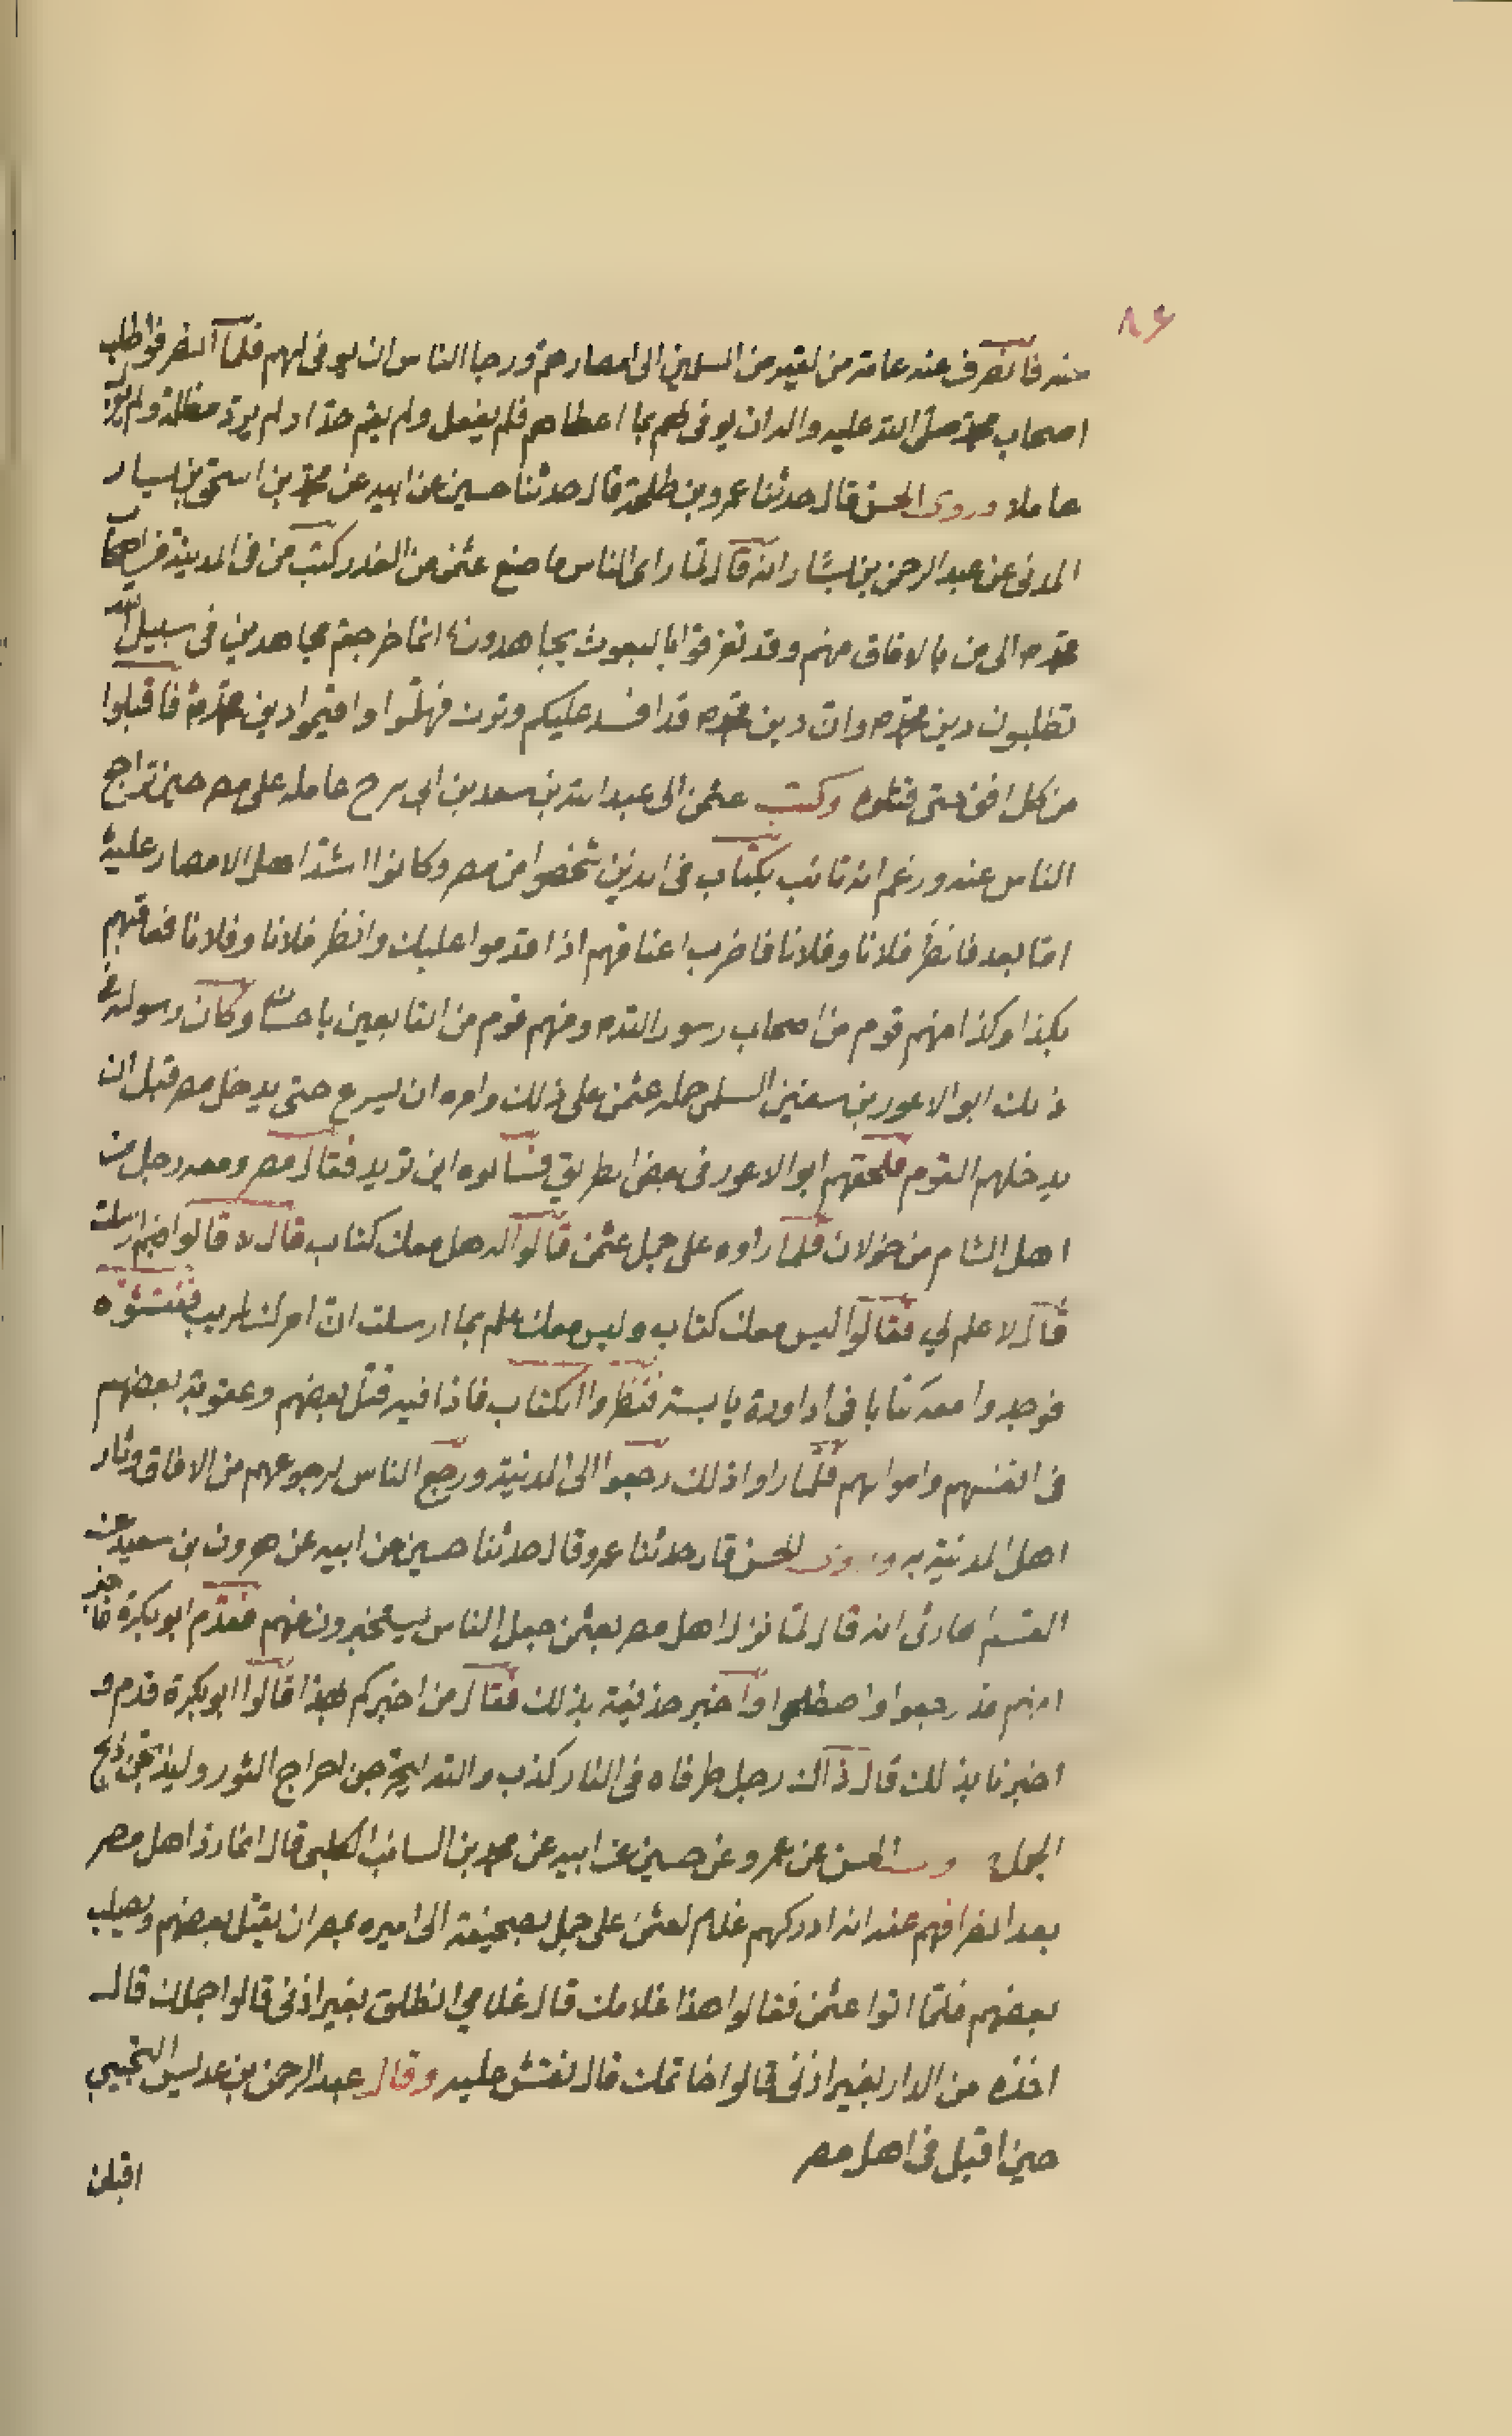 ٨٤
منه فانصرف عنه عامة من لقيه من المسلمين الى امصارهم ورجا الناس ان يوفى لهم فلما انصرفوا طلب
اصحاب محمد صلى الله عليه واله ان يوفى لهم بما اعطاهم فلم يفعل ولم يقم حدا ولم يرد مظلمة ولم
عاملا وروى الحسن قال حدثنا عمرو بن طلحة قال حدثنا حسين عن ابيه عن محمد بن اسحق بن يسار
المدنى عن عبد الرحمن بن يسار انه قال لما راى الناس ما صنع عثمن من الغدر كتب من فى المدينة من اصحاب
محمد ص الى من بالافاق منهم وقد تفرقوا بالبعوث يجاهدون انما خرجتم مجاهدين فى سبيل الله
تطلبون دين محمد ص وان دين محمد ص قد افسد عليكم وترك فهلموا واقيموا دين محمد ص فاقبلوا
من كل افق حتى قتلوه وكتب عثمن الى عبد الله بن سعد بن ابى سرح عامله على مصر حين تراجع
الناس عنه وزعم انه تائب بكتاب فى الذين شخصوا من مصر وكانوا اشد اهل الامصار عليه
اما بعد فانظر فلانا وفلانا فاضرب اعناقهم اذا قدموا عليك وانظر فلانا وفلانا فعاقبهم
بكذا وكذا منهم قوم من اصحاب رسول الله ص ومنهم قوم من التابعين باحسان وكان رسوله فى
ذلك ابو الاعور بن سفين السلمى حمله عثمن على ذلك وامره ان يسرع حتى يدخل مصر قبل ان
يدخلهم القوم فلحقهم ابو الاعور فى بعض الطريق فسالوه اين تريد فقال مصر ومعه رجل من
اهل الشام من خولان فلما راوه على جمل عثمن قالوا له هل معك كتاب قال لا قالوا فيم ارسلت
قال لا علم لي فقالوا ليس معك كتاب وليس معك علم بما ارسلت ان امرك لمريب ففتشوه
فوجدوا معه كتابا فى اداوة يابسة فنظروا الكتاب فاذا فيه قتل بعضهم وعقوبة بعضهم
فى انفسهم واموالهم فلما راوا ذلك رجعوا الى المدينة ورجع الناس لرجوعهم من الافاق وثار
اهل المدينة به وروى الحسن قال حدثنا عمرو قال حدثنا حسين عن ابيه عن هرون بن سعيد عن
القسم انه قال لما نزل اهل مصر بعثمن جعل الناس يستخبرون عنهم فقدم ابو بكرة فاخبر
انهم قد رجعوا واصطلحوا واخبر حذيفة بذلك فقال من اخبركم بهذا قالوا ابو بكرة قدم و
اخبرنا بذلك قال ذاك رجل طرفاه فى النار كذب والله ليخرجن اخراج الثور وليذبحن ذبح
الجمل وروى الحسن عن عمرو عن حسين عن ابيه عن محمد بن السائب الكلبى قال انما رد اهل مصر
بعد انصرافهم عنه انه ادركهم غلام لعثمن على جمل بصحيفة الى اميره بمصر ان يقتل بعضهم ويصلب
بعضهم فلما اتوا عثمن فقالوا هذا غلامك قال غلامي انطلق بغير اذنى قالوا جملك قال
اخذه من الدار بغير اذنى قالوا خاتمك قال نقش عليه وقال عبد الرحمن بن عديس التجيبي
حين اقبل فى اهل مصر
اقبلن